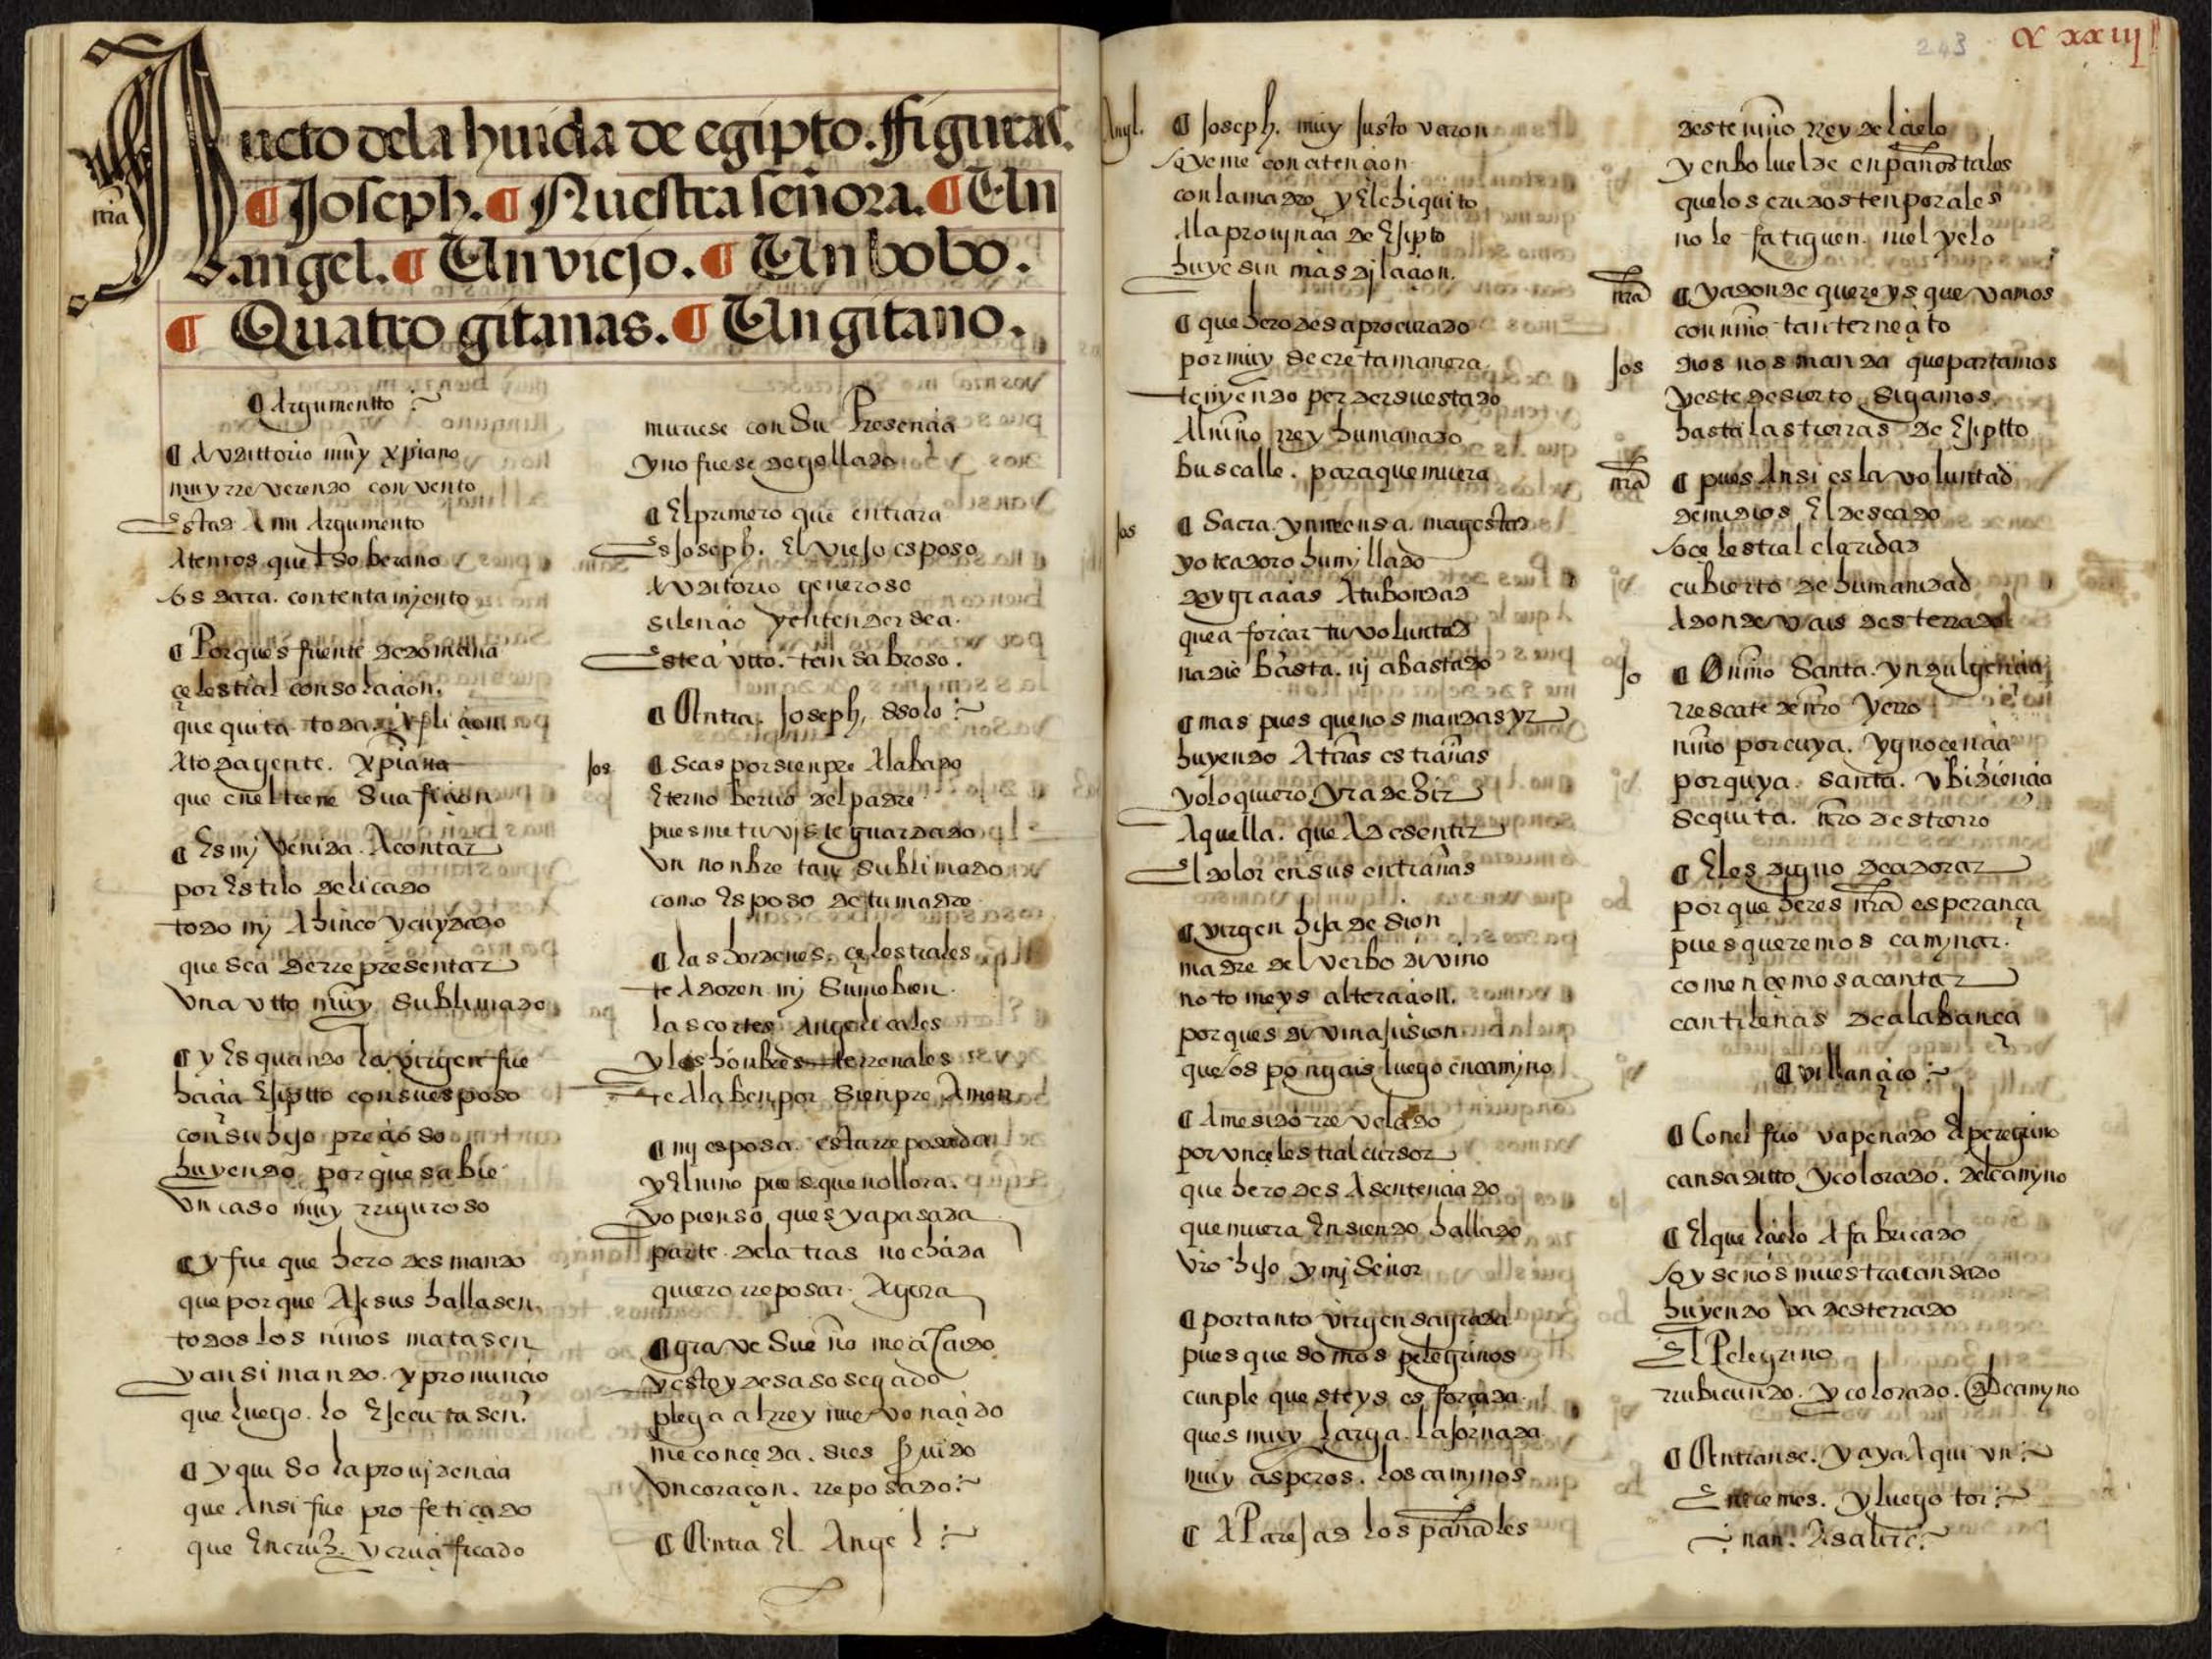 Aucto de la huida de egipto. figuras.
¶ Joseph. ¶ Nuestra señora. ¶ Un
angel. ¶ Un viejo. ¶ Un bobo.
¶ Quatro gitanas. ¶ Un gitano.
¶ Argumentto
¶ Avdittorio muy xpiano
muy rreverendo convento
estad A mi Argumento
Atentos que l soberano
os dara. contentamjento
¶ Porques fuente de do mana
çelestial consolaçion.
que quita toda
A toda gente. xpiana
que en el tiene su afiçion
¶ Es mj venida. A contar
por Estilo delicado
todo mj Ahinco y cuydado
que sea de rrepresentar
vn avtto muy sublimado
¶ y Es quando la virgen fue
haçia Ejiptto con su esposo
con su hijo preçioso
huyendo porque sabie
vn caso muy rriguroso
¶ y fue que herodes mando
que porque A Jesus hallasen
todos los niños matasen
y ansi mando. y pronunçio
que luego. lo Ejecutasen.
¶ y quiso la provjdençia
que Ansi fue profetiçado
que En cruz. y cruçificado
muriese con su Presençia
y no fuese degollado
¶ El primero que entrara
es Joseph. El viejo esposo
Avditorio generoso
silençio y entender sea.
este avtto. tan sabroso.
¶ Entra. Joseph, ssolo
Jos ¶ Seas por sienpre Alabado
Eterno berbo del padre
pues me tuvjste guardado
vn nonbre tan sublimado
como Esposo de tu madre
¶ las hordenes. çelestiales
te Adoren mj sumo bien.
las cortes Angelicales
y los honbres terrenales
te Alaben por sienpre Amen
¶ mj esposa. esta rreposada
y El niño pues que no llora.
yo pienso ques ya pasada
parte de la tras nochada
quiero rreposar. Agora
¶ grave sueño me a caido
y estoy desasosegado
plega al rrey
me conçeda. si es seruido
vn coraçon. rreposado
¶ Entra El Angel
243 CXXXIIJ
Angl. ¶ Joseph. muy justo varon
oyeme con atençion
con la madre y El chiquito
A la provjnçia de Ejipto
huye sin mas djlaçion.
¶ que herodes a procurado
por muy secreta manera
teniendo
Al niño rrey humanado
buscalle. para que muera
Jos ¶ Sacra. ynmensa. magestad
yo te adoro humjllado
doy graçias A tu bondad
que a forçar tu voluntad
nadie basta. nj a bastado
¶ mas pues que nos mandas yr
huyendo A tierras estrañas
yo lo quiero yr a dezir
Aquella. que A de sentir
El dolor en sus entrañas
¶ virgen hija de Sion
madre del verbo divino
no tomeys alteraçion.
porques divina jusion
que os pongais luego en camjno
¶ A me sido rrevelado
por vn çelestial cursor
que herodes A sentençiado
que muera En siendo hallado
vro hijo y mj Señor
¶ por tanto virgen sagrada
pues que somos pelegrinos
cunple que steys esforçada.
ques muy larga. la jornada
muy asperos. los camjnos
¶ A Parejad los pañales
deste niño rrey del çielo
y enboluelde en paños tales
que los crudos tenporales
no le fatiguen. ni el yelo
nra ¶ y a donde quereys que vamos
con niño tan terneçito
Jos dios nos manda que partamos
y este desierto. sigamos
hasta las tierras de Ejiptto
nra ¶ pues Ansi es la voluntad
de mi dios El deseado
o çelestial claridad
cubierto de humanidad
A donde vais desterrado
Jo ¶ O niño Santa. yndulgençia
rrescate de nro yerro
niño por cuya. ygnoçençia
por quya. santa. vbidiençia
se quita. nro destierro
¶ El es digno de adorar
porque heres nra esperança
pues queremos camjnar.
comencemos a cantar
cantilenas de alabança
¶ villançico
¶ Con el frio va penado El peregrino
cansaditto y colorado. del camjno
¶ El que l çielo A fabricado
oy se nos muestra cansado
huyendo va desterrado
El Pelegrino
rrubicundo. y colorado. del camjno
¶ Entranse. y aya Aqui vn
Entremes. y luego tor
nan. A salir.